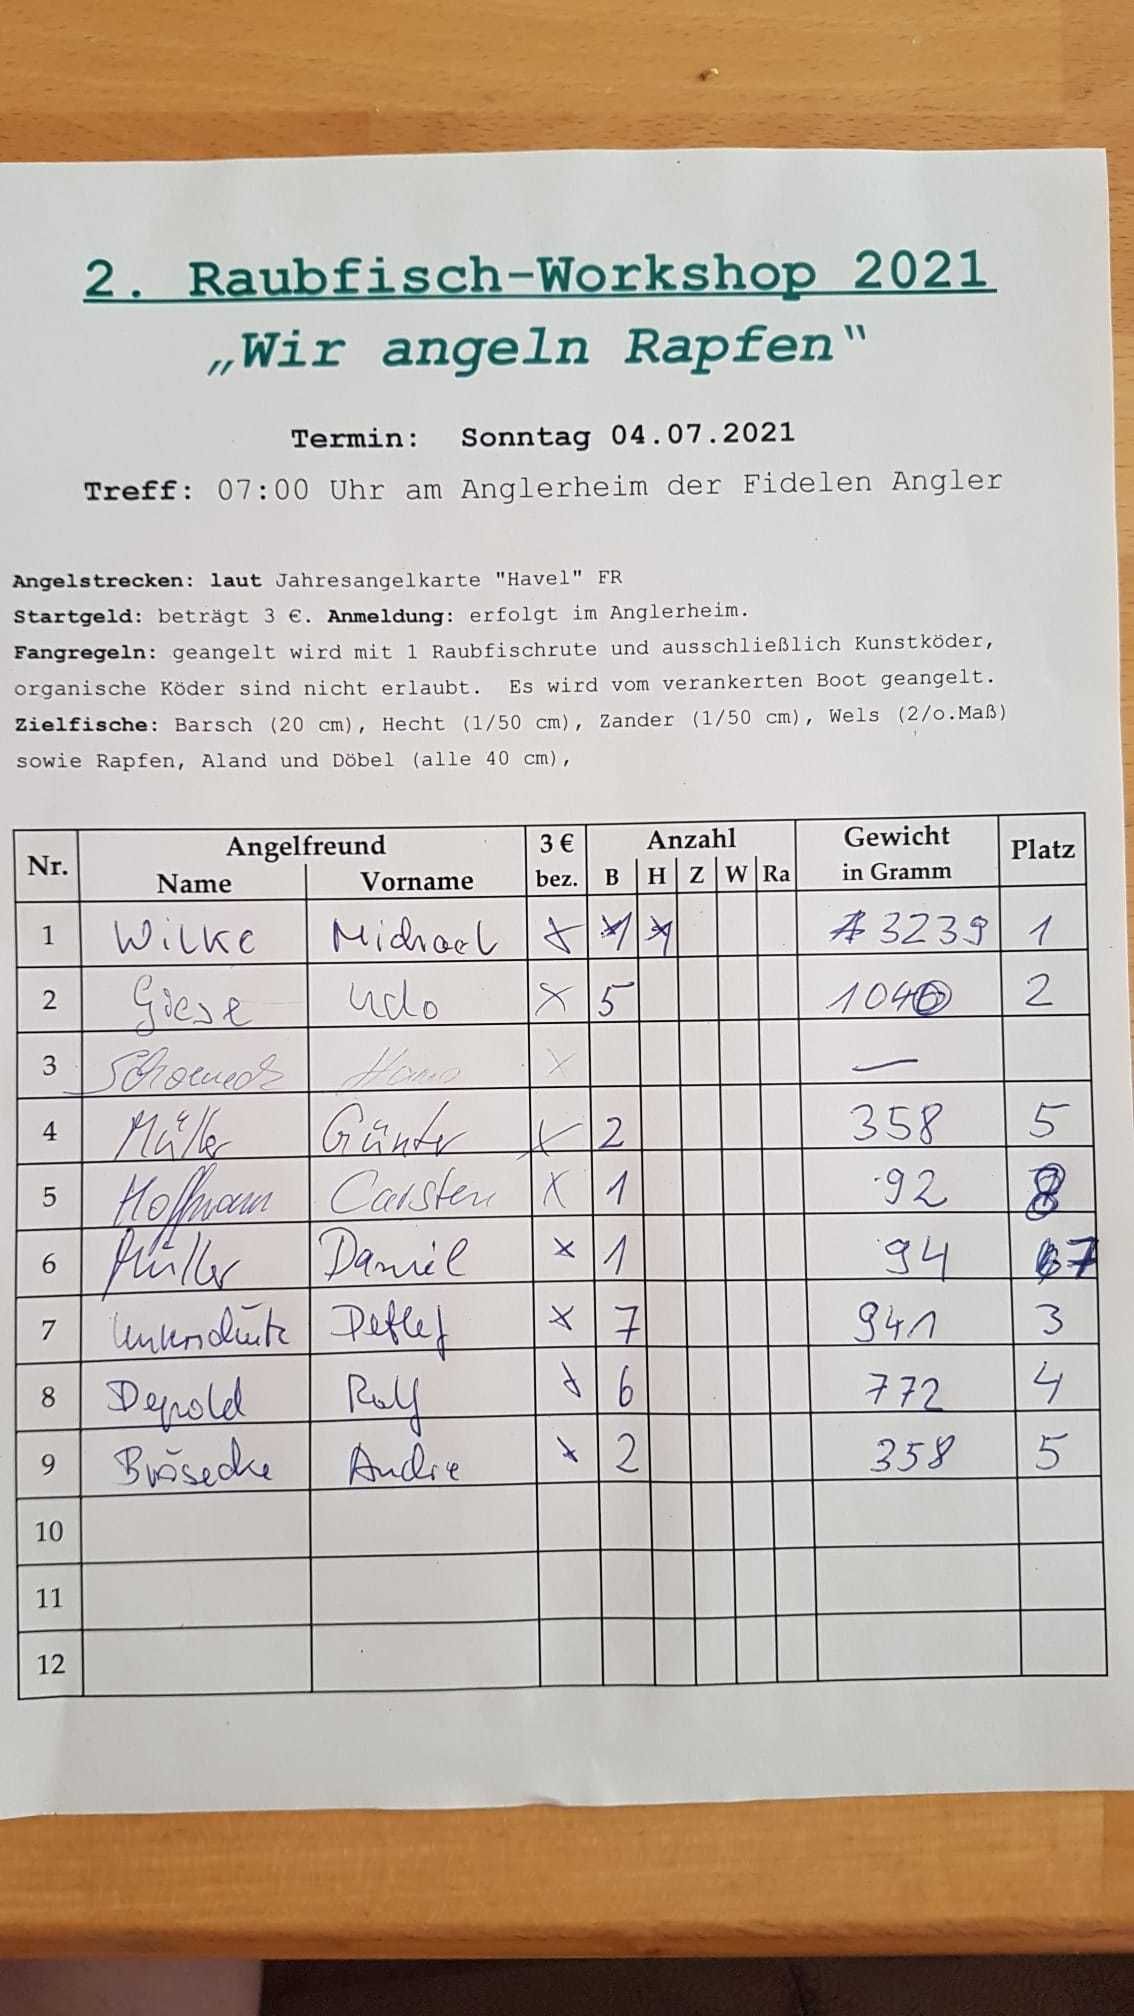 2. Raubfisch-Workshop 2021
„Wir angeln Rapfen“
Termin: Sonntag 04.07.2021
Treff: 07:00 Uhr am Anglerheim der Fidelen Angler
Angelstrecken: laut Jahresangelkarte "Havel" FR
Startgeld: beträgt 3 €. Anmeldung: erfolgt im Anglerheim.
Fangregeln: geangelt wird mit 1 Raubfischrute und ausschließlich Kunstköder,
organische Köder sind nicht erlaubt. Es wird vom verankerten Boot geangelt.
Zielfische: Barsch (20 cm), Hecht (1/50 cm), Zander (1/50 cm), Wels (2/o.Maß)
sowie Rapfen, Aland und Döbel (alle 40 cm),
Nr. Angelfreund 3 € Anzahl Gewicht Platz
Name Vorname bez. B H Z W Ra in Gramm
1 Wilke Michael x 3239 1
2 Giese Udo x 5 1046 2
3 x —
4 Müller Günter x 2 358 5
5 Hoffmann Carsten x 1 92 8
6 Müller Daniel x 1 94 7
7 Detlef x 7 941 3
8 Depold Ralf x 6 772 4
9 Brösecke Andre x 2 358 5
10
11
12